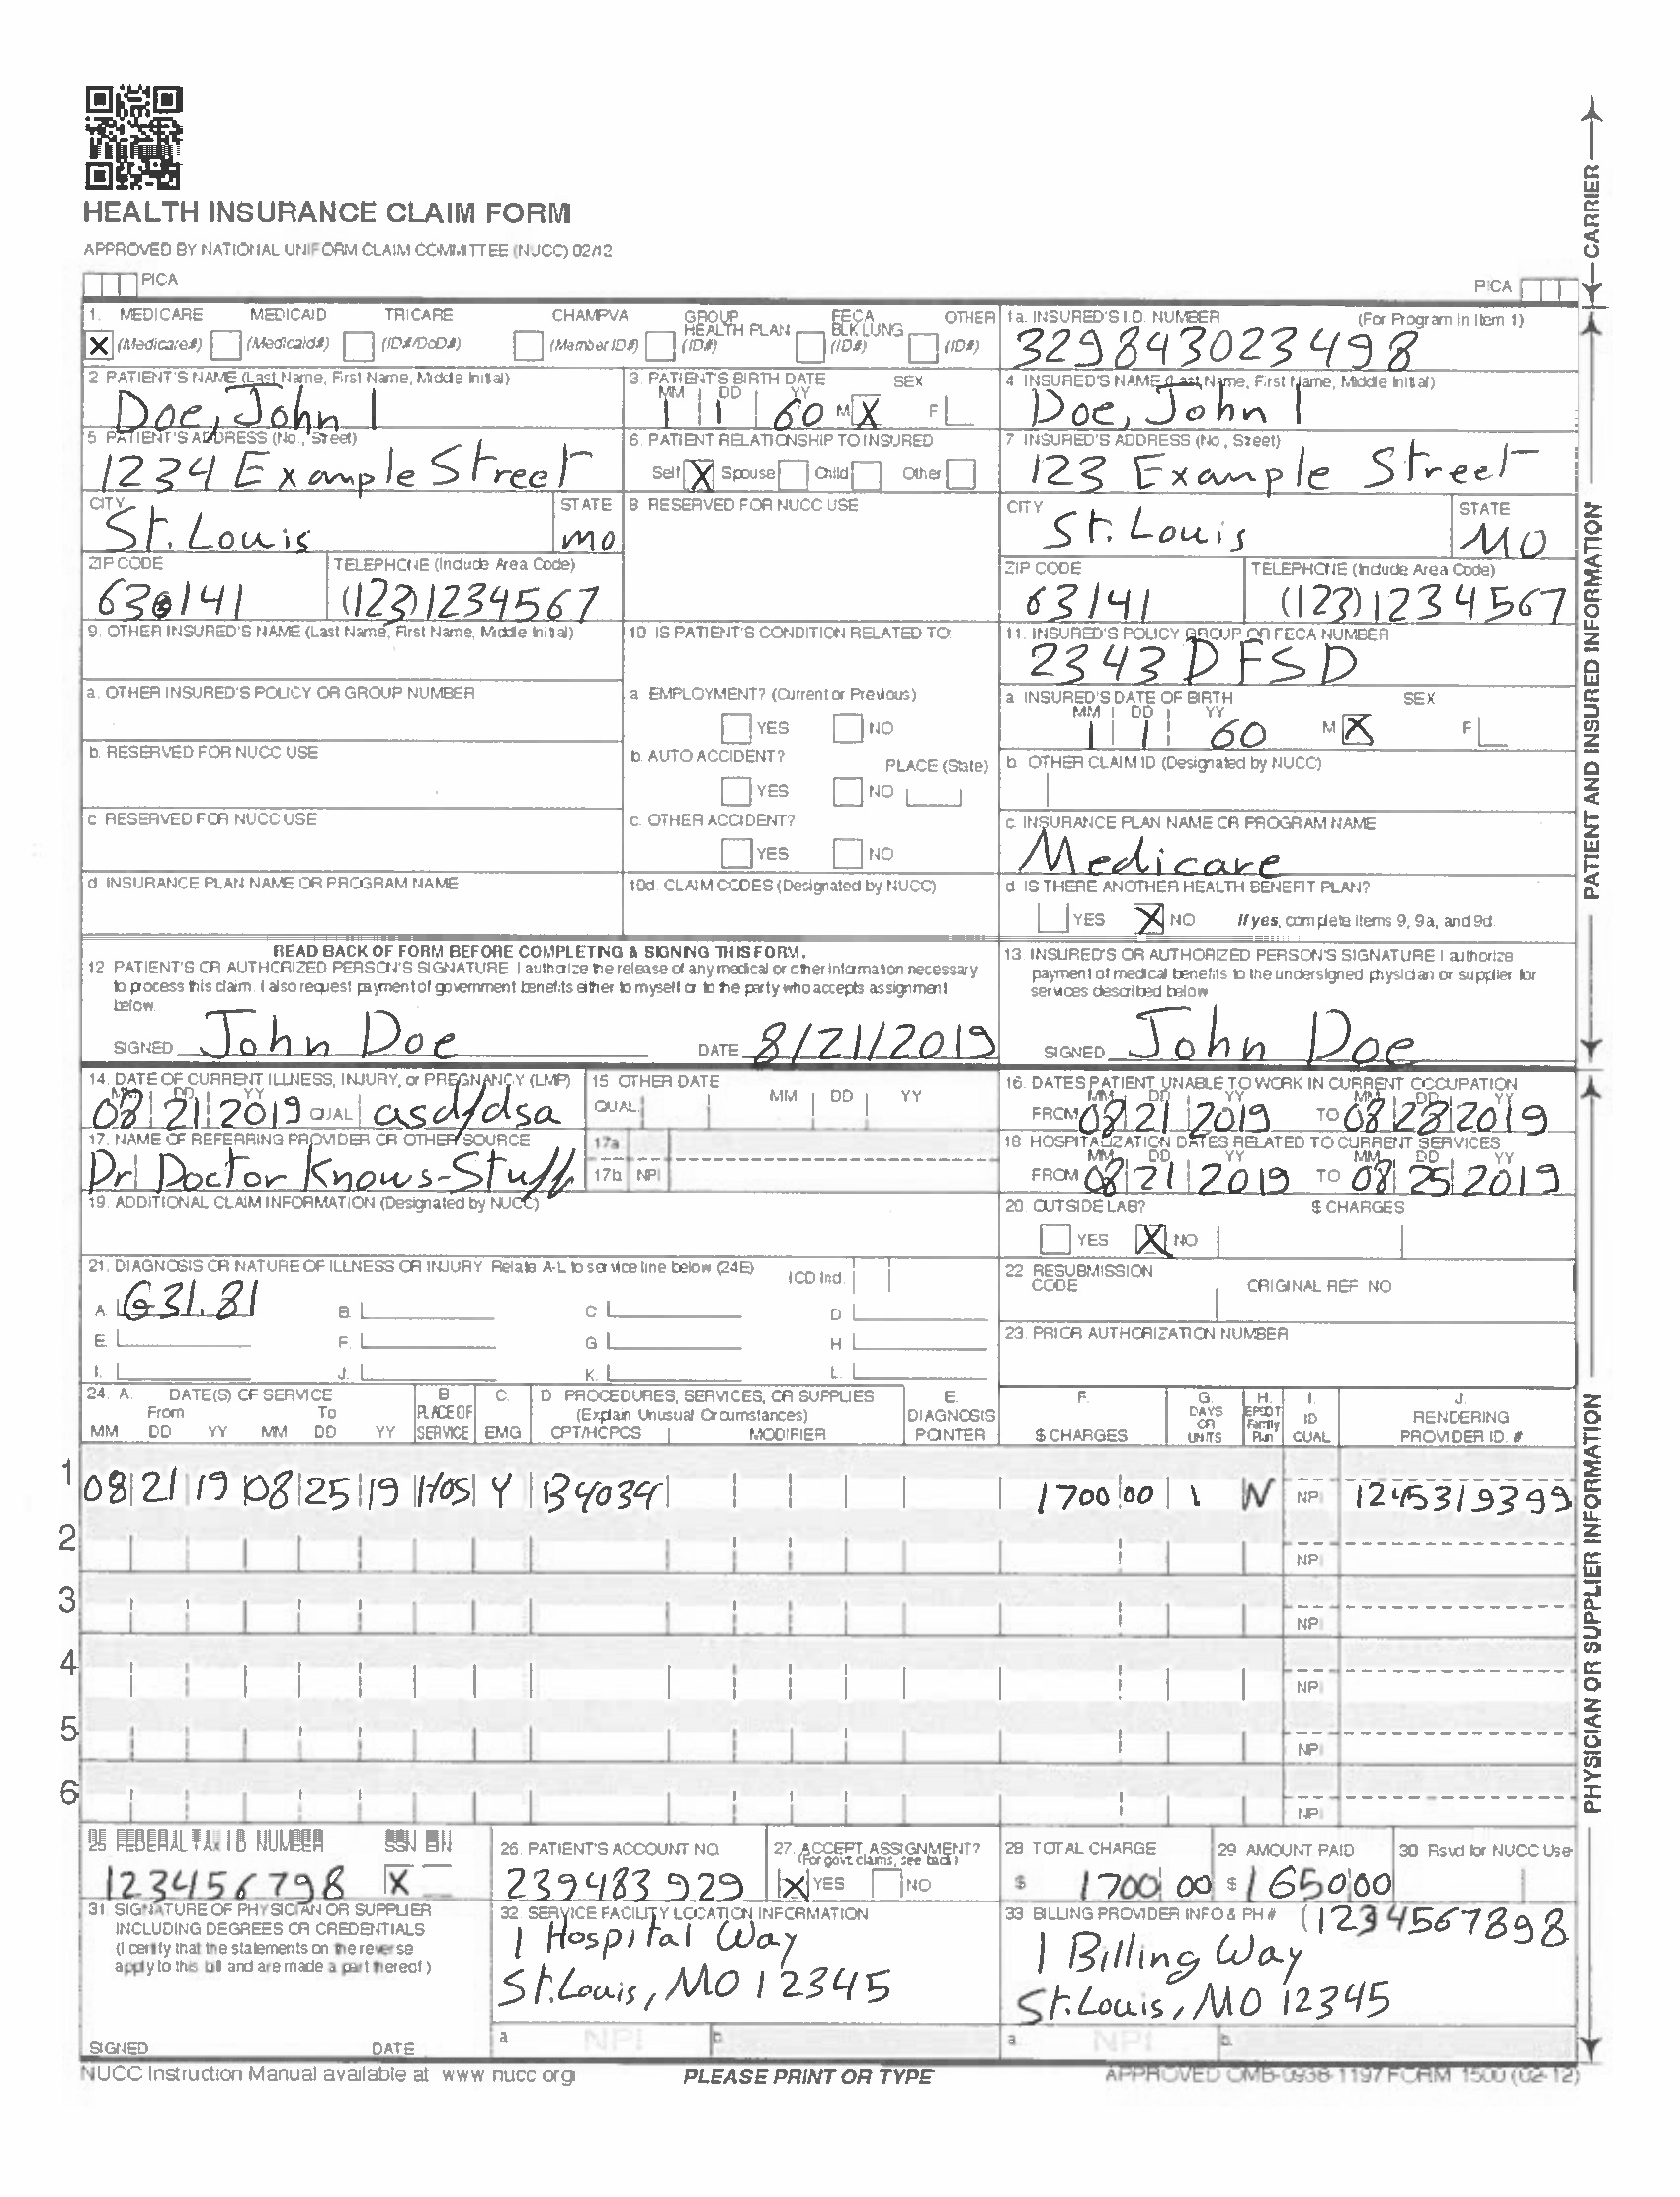 HEALTH INSURANCE CLAIM FORM
APPROVED BY NATIONAL UNIFORM CLAIM COMMITTEE (NUCC) 02/12
PICA
PICA
CARRIER
1. MEDICARE MEDICAID TRICARE CHAMPVA GROUP HEALTH PLAN FECA BLK LUNG OTHER
X (Medicare#) (Medicaid#) (ID#/DoD#) (Member ID#) (ID#) (ID#) (ID#)
1a. INSURED'S I.D. NUMBER (For Program in Item 1)
329843023498
2 PATIENT'S NAME (Last Name, First Name, Middle Initial)
Doe, John I
3. PATIENT'S BIRTH DATE SEX
MM DD YY
1 1 60 M X F
4 INSURED'S NAME (Last Name, First Name, Middle Initial)
Doe, John I
5 PATIENT'S ADDRESS (No., Street)
1234 Example Street
6. PATIENT RELATIONSHIP TO INSURED
Self X Spouse Child Other
7 INSURED'S ADDRESS (No., Street)
123 Example Street
CITY STATE
St. Louis MO
8 RESERVED FOR NUCC USE
CITY STATE
St. Louis MO
ZIP CODE TELEPHONE (Include Area Code)
63 141 (123)1234567
ZIP CODE TELEPHONE (Include Area Code)
63141 (123)1234567
9. OTHER INSURED'S NAME (Last Name, First Name, Middle Initial)
10 IS PATIENT'S CONDITION RELATED TO:
11. INSURED'S POLICY GROUP OR FECA NUMBER
2343DFSD
a. OTHER INSURED'S POLICY OR GROUP NUMBER
a EMPLOYMENT? (Current or Previous)
YES NO
a INSURED'S DATE OF BIRTH SEX
MM DD YY
1 1 60 M X F
b. RESERVED FOR NUCC USE
b. AUTO ACCIDENT? PLACE (State)
YES NO
b OTHER CLAIM ID (Designated by NUCC)
c RESERVED FOR NUCC USE
c. OTHER ACCIDENT?
YES NO
c. INSURANCE PLAN NAME OR PROGRAM NAME
Medicare
d INSURANCE PLAN NAME OR PROGRAM NAME
10d. CLAIM CODES (Designated by NUCC)
d IS THERE ANOTHER HEALTH BENEFIT PLAN?
YES X NO If yes, complete items 9, 9a, and 9d.
PATIENT AND INSURED INFORMATION
READ BACK OF FORM BEFORE COMPLETING & SIGNING THIS FORM.
12 PATIENT'S OR AUTHORIZED PERSON'S SIGNATURE I authorize the release of any medical or other information necessary
to process this claim. I also request payment of government benefits either to myself or to the party who accepts assignment
below.
SIGNED John Doe DATE 8/21/2019
13. INSURED'S OR AUTHORIZED PERSON'S SIGNATURE I authorize
payment of medical benefits to the undersigned physician or supplier for
services described below
SIGNED John Doe
14. DATE OF CURRENT ILLNESS, INJURY, or PREGNANCY (LMP)
MM DD YY
08 21 2019 QUAL asdfdsa
15 OTHER DATE
QUAL MM DD YY
16. DATES PATIENT UNABLE TO WORK IN CURRENT OCCUPATION
MM DD YY MM DD YY
FROM 08 21 2019 TO 08 28 2019
17. NAME OF REFERRING PROVIDER OR OTHER SOURCE
Dr Doctor Knows-Stuff
17a
17b NPI
18 HOSPITALIZATION DATES RELATED TO CURRENT SERVICES
MM DD YY MM DD YY
FROM 08 21 2019 TO 08 25 2019
19. ADDITIONAL CLAIM INFORMATION (Designated by NUCC)
20. OUTSIDE LAB? $ CHARGES
YES X NO
21. DIAGNOSIS OR NATURE OF ILLNESS OR INJURY Relate A-L to service line below (24E) ICD Ind.
A. G31.81 B. C. D.
E. F. G. H.
I. J. K. L.
22 RESUBMISSION CODE ORIGINAL REF NO
23. PRIOR AUTHORIZATION NUMBER
24. A. DATE(S) OF SERVICE B PLACE OF SERVICE C. EMG D PROCEDURES, SERVICES, OR SUPPLIES E. DIAGNOSIS POINTER F. $ CHARGES G. DAYS OR UNITS H. EPSDT Family Plan I. ID QUAL J. RENDERING PROVIDER ID. #
From To (Explain Unusual Circumstances)
MM DD YY MM DD YY CPT/HCPCS MODIFIER
1 08 21 19 08 25 19 Hos Y B4034 1700 00 1 N NPI 1245319399
2 NPI
3 NPI
4 NPI
5 NPI
6 NPI
PHYSICIAN OR SUPPLIER INFORMATION
25 FEDERAL TAX ID NUMBER SSN EIN
123456798 X
26. PATIENT'S ACCOUNT NO.
239483929
27. ACCEPT ASSIGNMENT?
(For govt. claims, see back)
X YES NO
28 TOTAL CHARGE
$ 1700 00
29 AMOUNT PAID
$ 1650 00
30 Rsvd for NUCC Use
31 SIGNATURE OF PHYSICIAN OR SUPPLIER
INCLUDING DEGREES OR CREDENTIALS
(I certify that the statements on the reverse
apply to this bill and are made a part thereof.)
SIGNED DATE
32 SERVICE FACILITY LOCATION INFORMATION
1 Hospital Way
St. Louis, MO 12345
a NPI b.
33 BILLING PROVIDER INFO & PH # (1234567898
1 Billing Way
St. Louis, MO 12345
a. NPI b.
NUCC Instruction Manual available at www nucc org
PLEASE PRINT OR TYPE
APPROVED OMB-0938-1197 FORM 1500 (02-12)